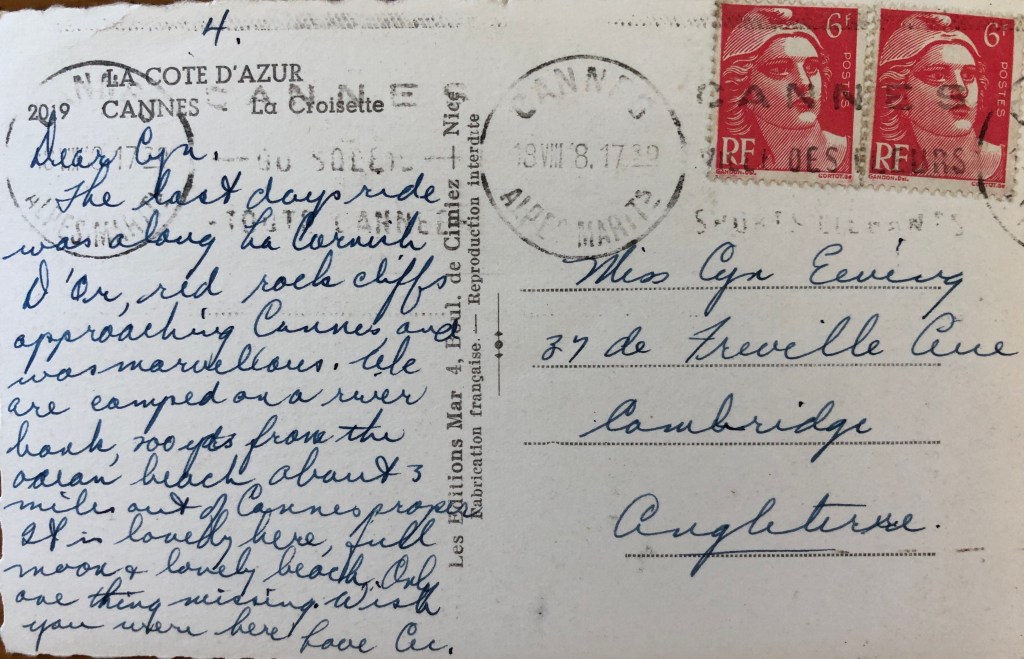 4.
LA COTE D'AZUR
2019 CANNES La Croisette
Dear Cyn.
The last days ride
was along La Cornish
D'Or, red rock cliffs
approaching Cannes, and
was marvellous. We
are camped on a river
bank, 200 yds from the
ocean beach about 3
miles out of Cannes proper
It is lovely here, full
moon & lovely beach. Only
one thing missing. Wish
you were here Love Cec.
Les Editions Mar 4, Boul. de Cimiez — Nice
Fabrication française. — Reproduction interdite
CANNES
DU SOLEIL
TOUTE CANNES
CANNES
18 VIII 8. 17 30
ALPES MARITS
CANNES
DES FLEURS
SPORTS ELEGANTS
6F
POSTES
RF
GANDON.DEL. CORTOT.SC.
6F
POSTES
RF
GANDON.DEL.
Miss Cyn Ewing
37 de Freville Ave
Cambridge
Angleterre.